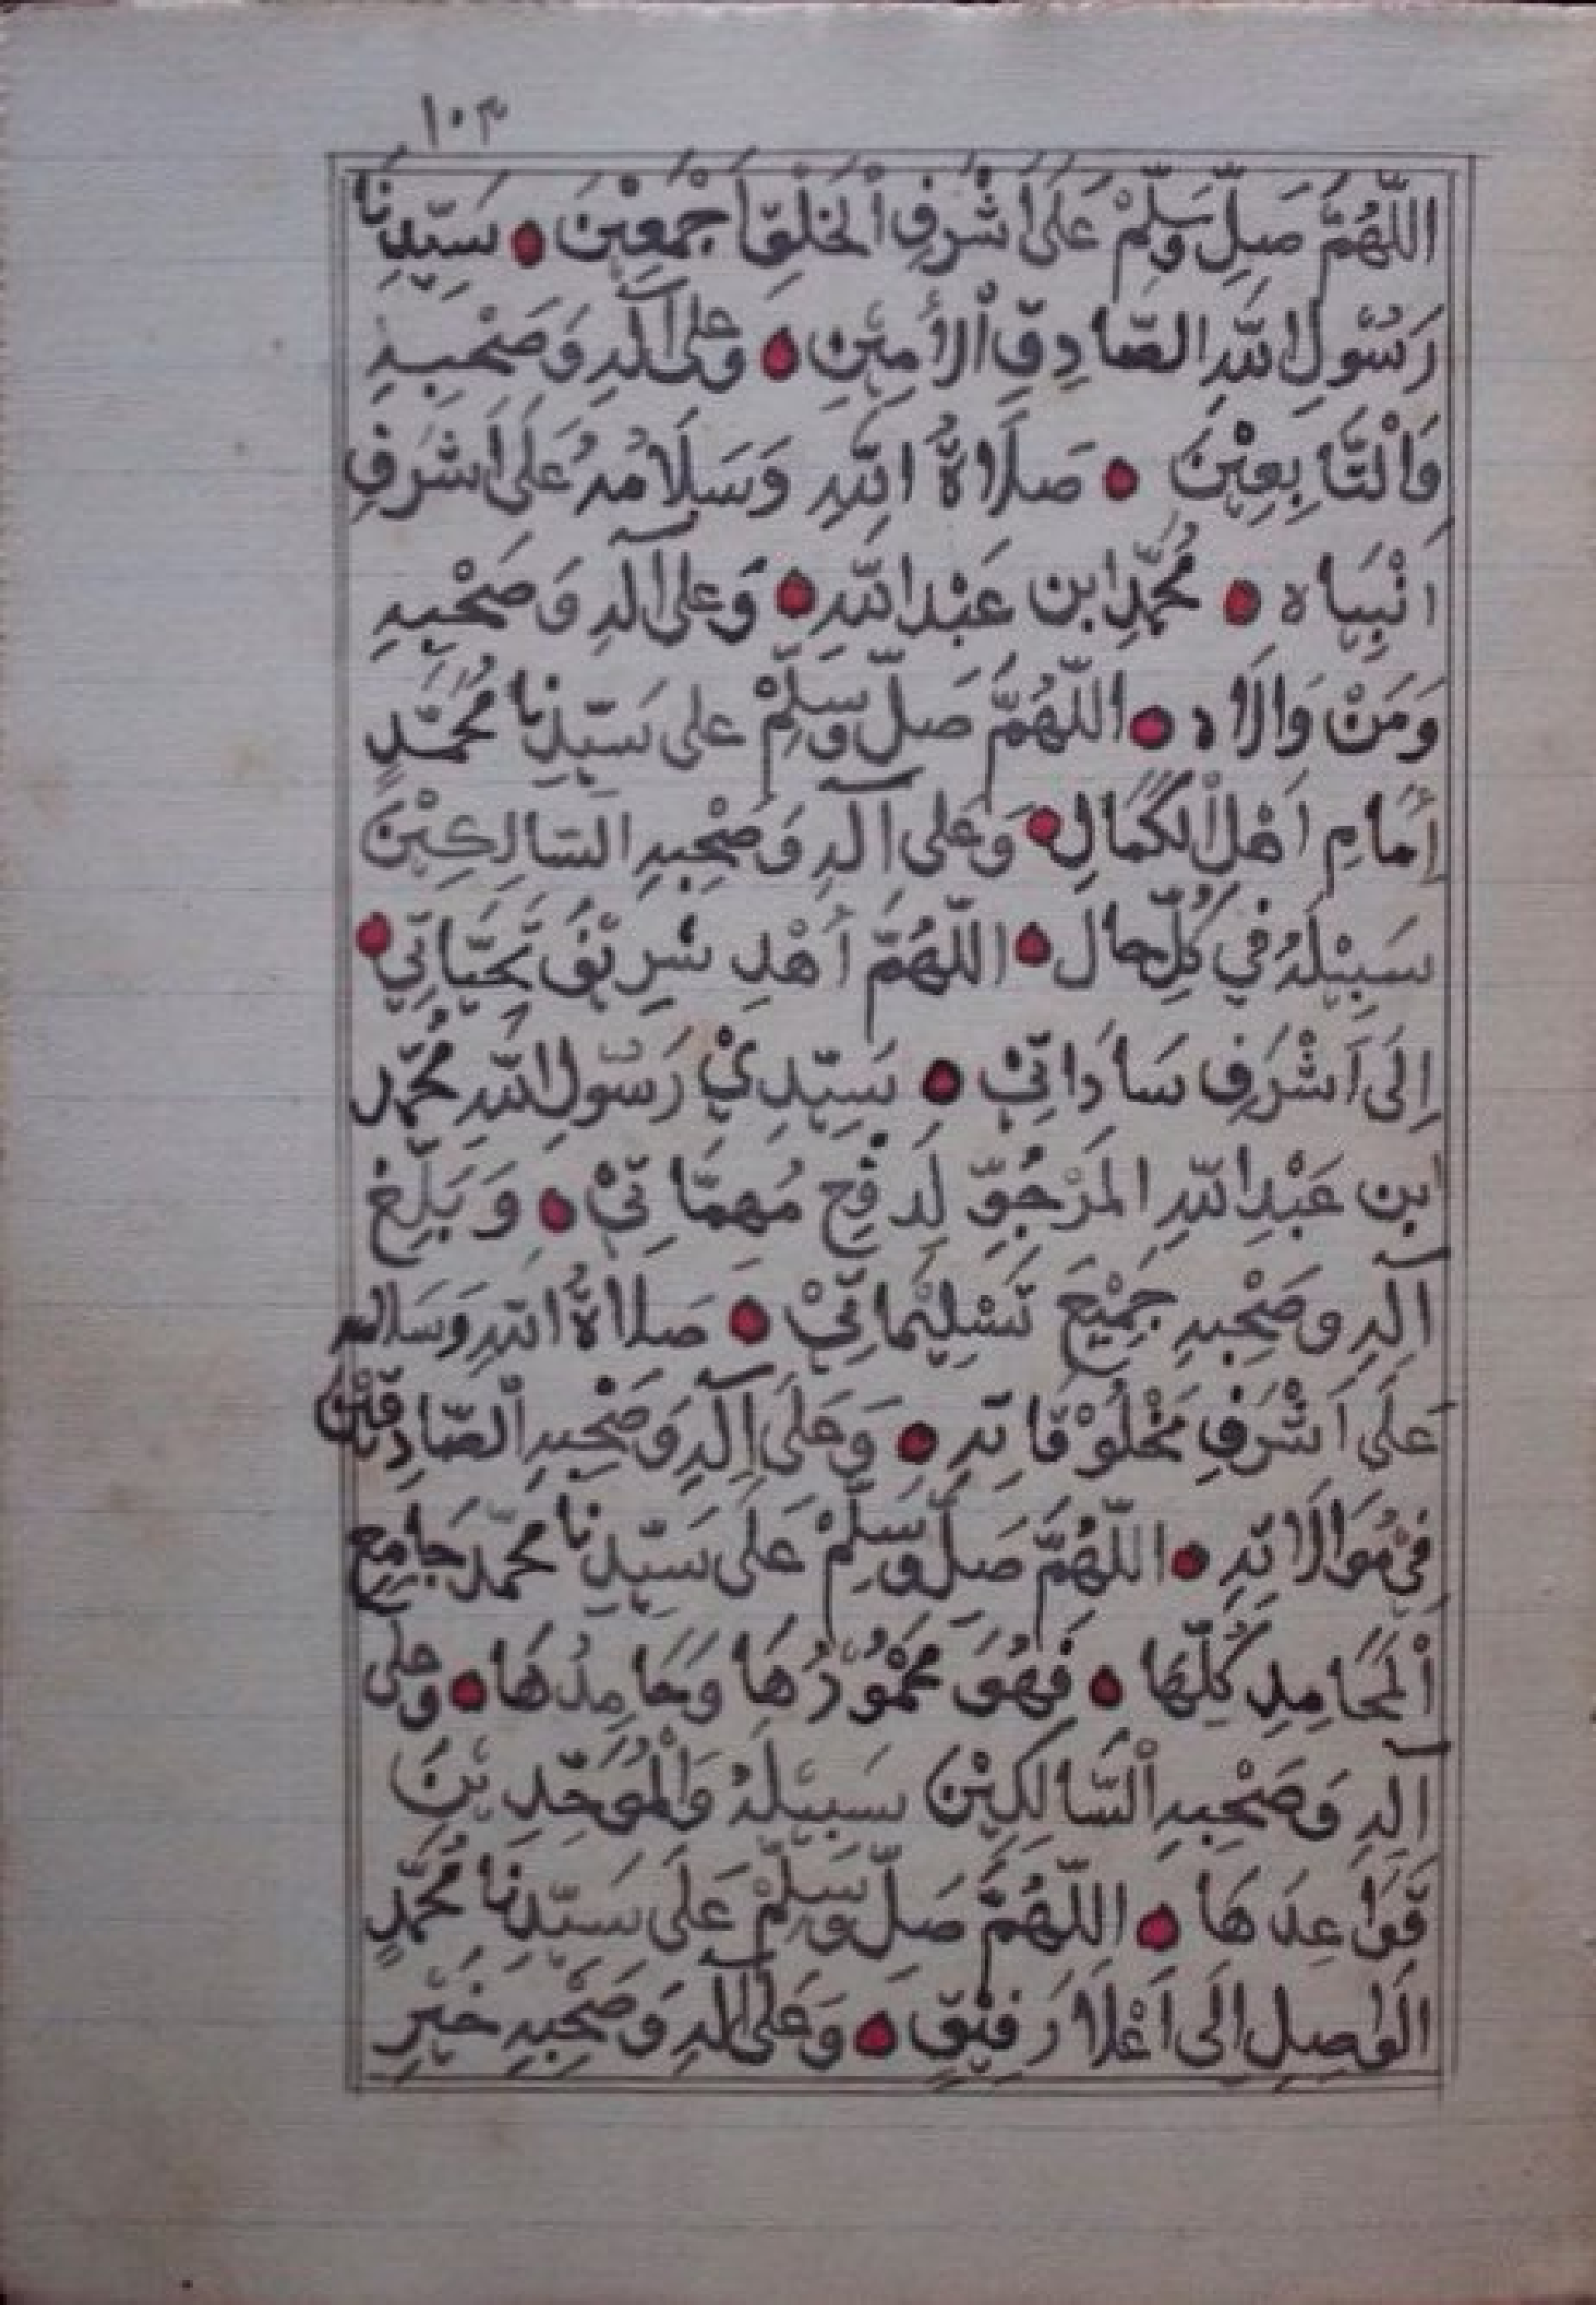 ١٠٣
اللّٰهُمَّ صَلِّ وَسَلِّمْ عَلَى اَشْرَفِ اْلخَلْقِ اَجْمَعِيْنَ ● سَيِّدِنَا
رَسُوْلِ اللّٰهِ الصَّادِقِ اْلأَمِيْنِ ● وَعَلَى آلِهِ وَصَحْبِهِ
وَالْتَّابِعِيْنَ ● صَلَاةُ اللّٰهِ وَسَلَامُهُ عَلَى اَشْرَفِ
اَنْبِيَاه ● مُحَمَّدِ ابن عَبْدِ اللّٰهِ ● وَعَلى آلِهِ وَصَحْبِهِ
وَمَنْ وَالَاه ● اللّٰهُمَّ صَلِّ وَسَلِّمْ على سَيِّدِنَا مُحَمَّدٍ
إِمَامِ اَهْلِ اْلكَمَالِ ● وَعَلى آلِهِ وَصَحْبِهِ السَالِكِيْنَ
سَبِيْلَهُ في كُلِّ حال ● اللّٰهُمَّ اَهْدِ شَرِيْفَ تَحِيَّاتِي ●
اِلَى اَشْرَفِ سَادَاتِيْ ● سَيِّدِيْ رَسُوْلِ اللّٰهِ مُحَمَّد
ابن عَبْدِ اللّٰهِ المَرْجُوِّ لِدَفْعِ مُهِمَّاتِيْ ● وَبَلِّغ
آلِهِ وَصَحْبِهِ جَمِيْعَ تَسْلِيْمَاتِيْ ● صَلَاةُ اللّٰهِ وَسَلامه
عَلَى اَشْرَفِ مَخْلُوْقَاتِهِ ● وَعَلَى آلِهِ وَصَحْبِهِ اْلصَّادِقِيْنَ
فِيْ مُوَالَاتِهِ ● اللّٰهُمَّ صَلِّ وَسَلِّمْ عَلَى سَيِّدِنَا محمّد جَامِعِ
اْلمَحَامِدِ كُلِّهَا ● فَهُوَ مَحْمُوْدُهَا وَحَامِدُهَا ● وَعَلَى
آلِهِ وَصَحْبِهِ اْلسَّالِكِيْنَ سَبِيْلَهُ وَالْمُوَحِّدِيْنَ
قَوَاعِدَهَا ● اللّٰهُمَّ صَلِّ وَسَلِّمْ عَلَى سَيِّدِنَا مُحَمَّدٍ
الوٰصِلِ اِلَى اَعْلَا رَفِيْقٍ ● وَعَلَى آلِهِ وَصَحْبِهِ خَيْرِ